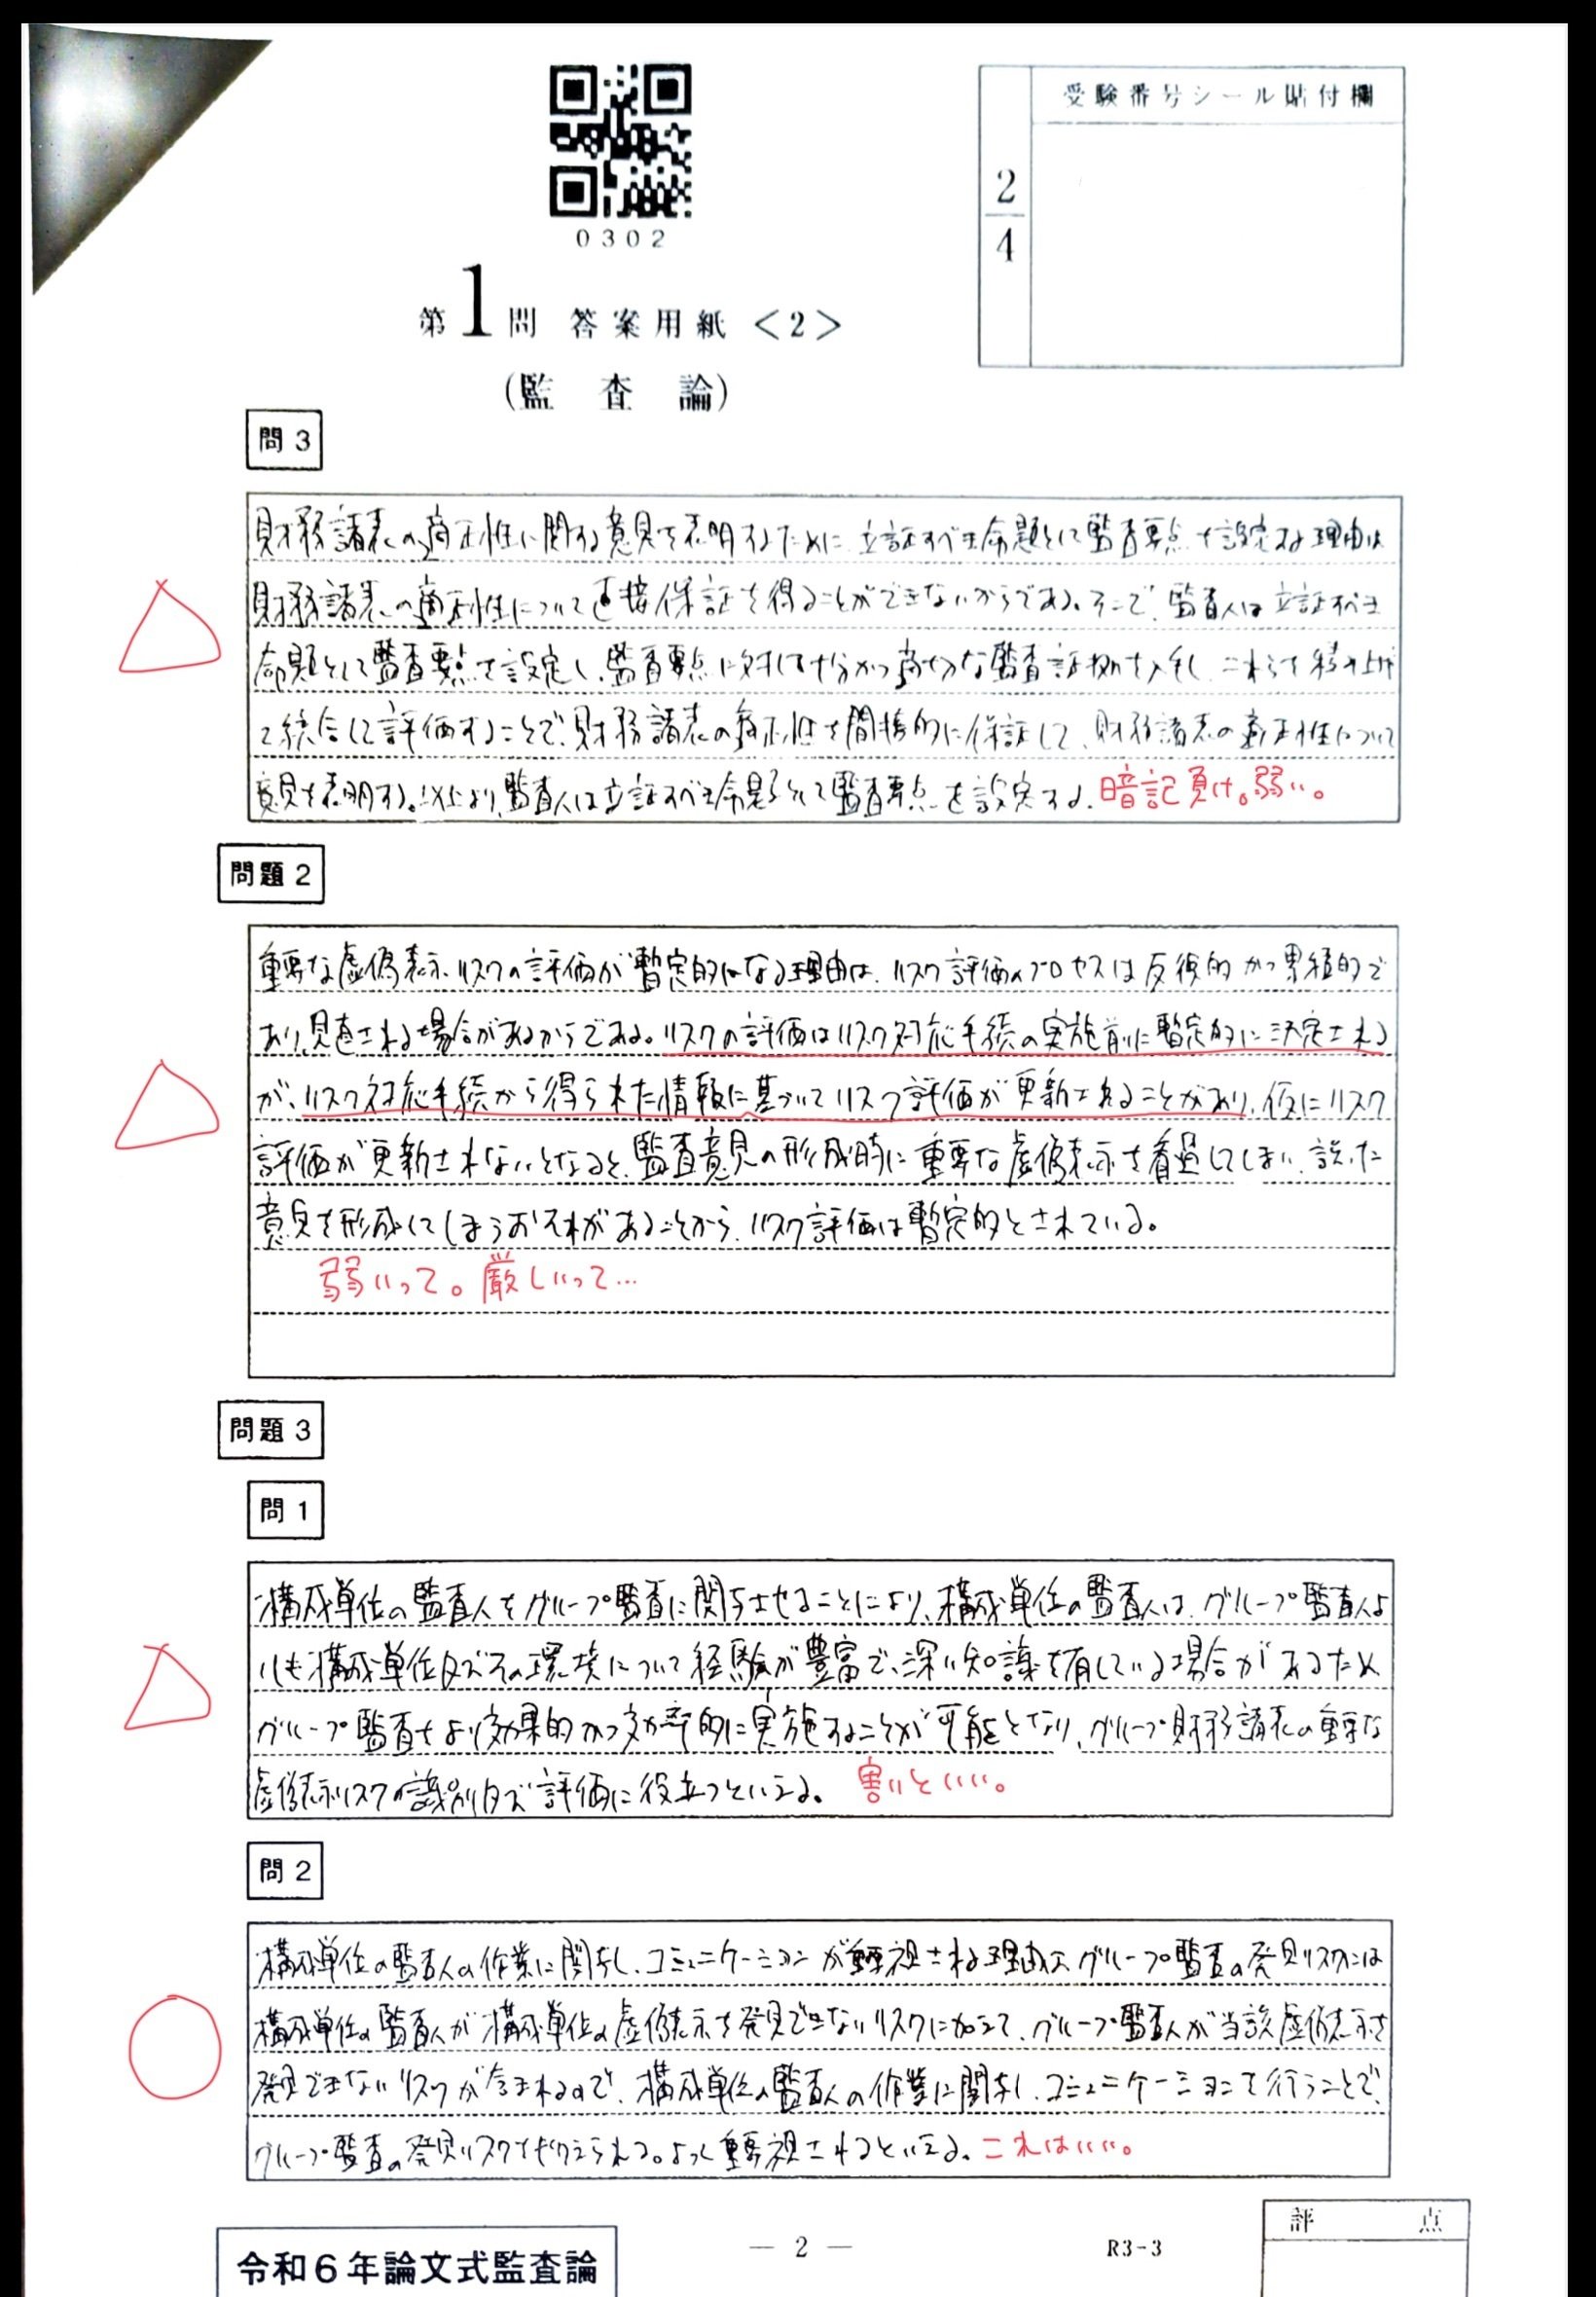 受験番号シール貼付欄
2
4
0302
第1問 答案用紙<2>
(監査論)
問3
財務諸表の適正性に関する意見を表明するために、立証すべき命題として監査要点を設定する理由は
財務諸表の適正性について直接保証を得ることができないからである。そこで、監査人は立証すべき
命題として監査要点を設定し、監査要点に対して十分かつ適切な監査証拠を入手し、これらを積み上げ
て統合して評価することで、財務諸表の適正性を間接的に保証して、財務諸表の適正性について
意見を表明する。以上より、監査人は立証すべき命題として監査要点を設定する。暗記負け。弱い。
問題2
重要な虚偽表示リスクの評価が暫定的になる理由は、リスク評価のプロセスは反復的かつ累積的で
あり、見直される場合があるからである。リスクの評価はリスク対応手続の実施前に暫定的に決定される
が、リスク対応手続から得られた情報に基づいてリスク評価が更新されることがあり、仮にリスク
評価が更新されないとなると、監査意見の形成時に重要な虚偽表示を看過してしまい、誤った
意見を形成してしまうおそれがあることから、リスク評価は暫定的とされている。
弱いって。厳しいって…
問題3
問1
構成単位の監査人をグループ監査に関与させることにより、構成単位の監査人は、グループ監査人よ
りも構成単位及びその環境について経験が豊富で、深い知識を有している場合があるため
グループ監査をより効果的かつ効率的に実施することが可能となり、グループ財務諸表の重要な
虚偽表示リスクの識別及び評価に役立つといえる。 割といい。
問2
構成単位の監査人の作業に関与し、コミュニケーションが重要視される理由は、グループ監査の発見リスクには
構成単位の監査人が構成単位の虚偽表示を発見できないリスクに加えて、グループ監査人が当該虚偽表示を
発見できないリスクが含まれるので、構成単位の監査人の作業に関与し、コミュニケーションを行うことで、
グループ監査の発見リスクを抑えられる。よって重要視されるといえる。これはいい。
令和6年論文式監査論
― 2 ―
R3-3
評点